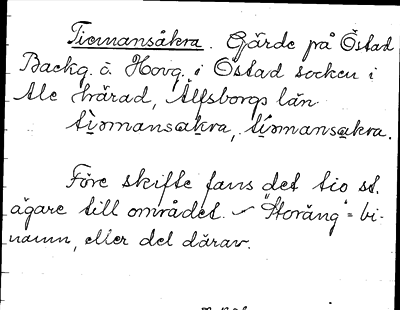 Tiomansåkra. Gärde på Östad
Backg. o. Hovg. i Östad socken i
Ale härad, Älfsborgs län.
tiomansakra, tiomansakra.
Före skifte fans det tio st.
ägare till området. "Storäng" = bi-
namn, eller del därav.